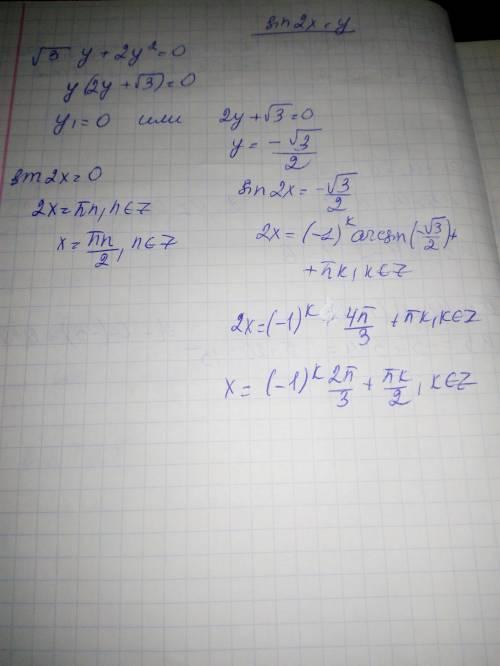 sin2x=y
√3 y + 2y² = 0
y(2y + √3) = 0
y₁ = 0 или 2y + √3 = 0
y = -√3/2
sin2x = 0
2x = πn, n∈Z
x = πn/2, n∈Z
sin2x = -√3/2
2x = (-1)ᵏ arcsin(-√3/2) +
+ πk, k∈Z
2x = (-1)ᵏ · 4π/3 + πk, k∈Z
x = (-1)ᵏ 2π/3 + πk/2, k∈Z